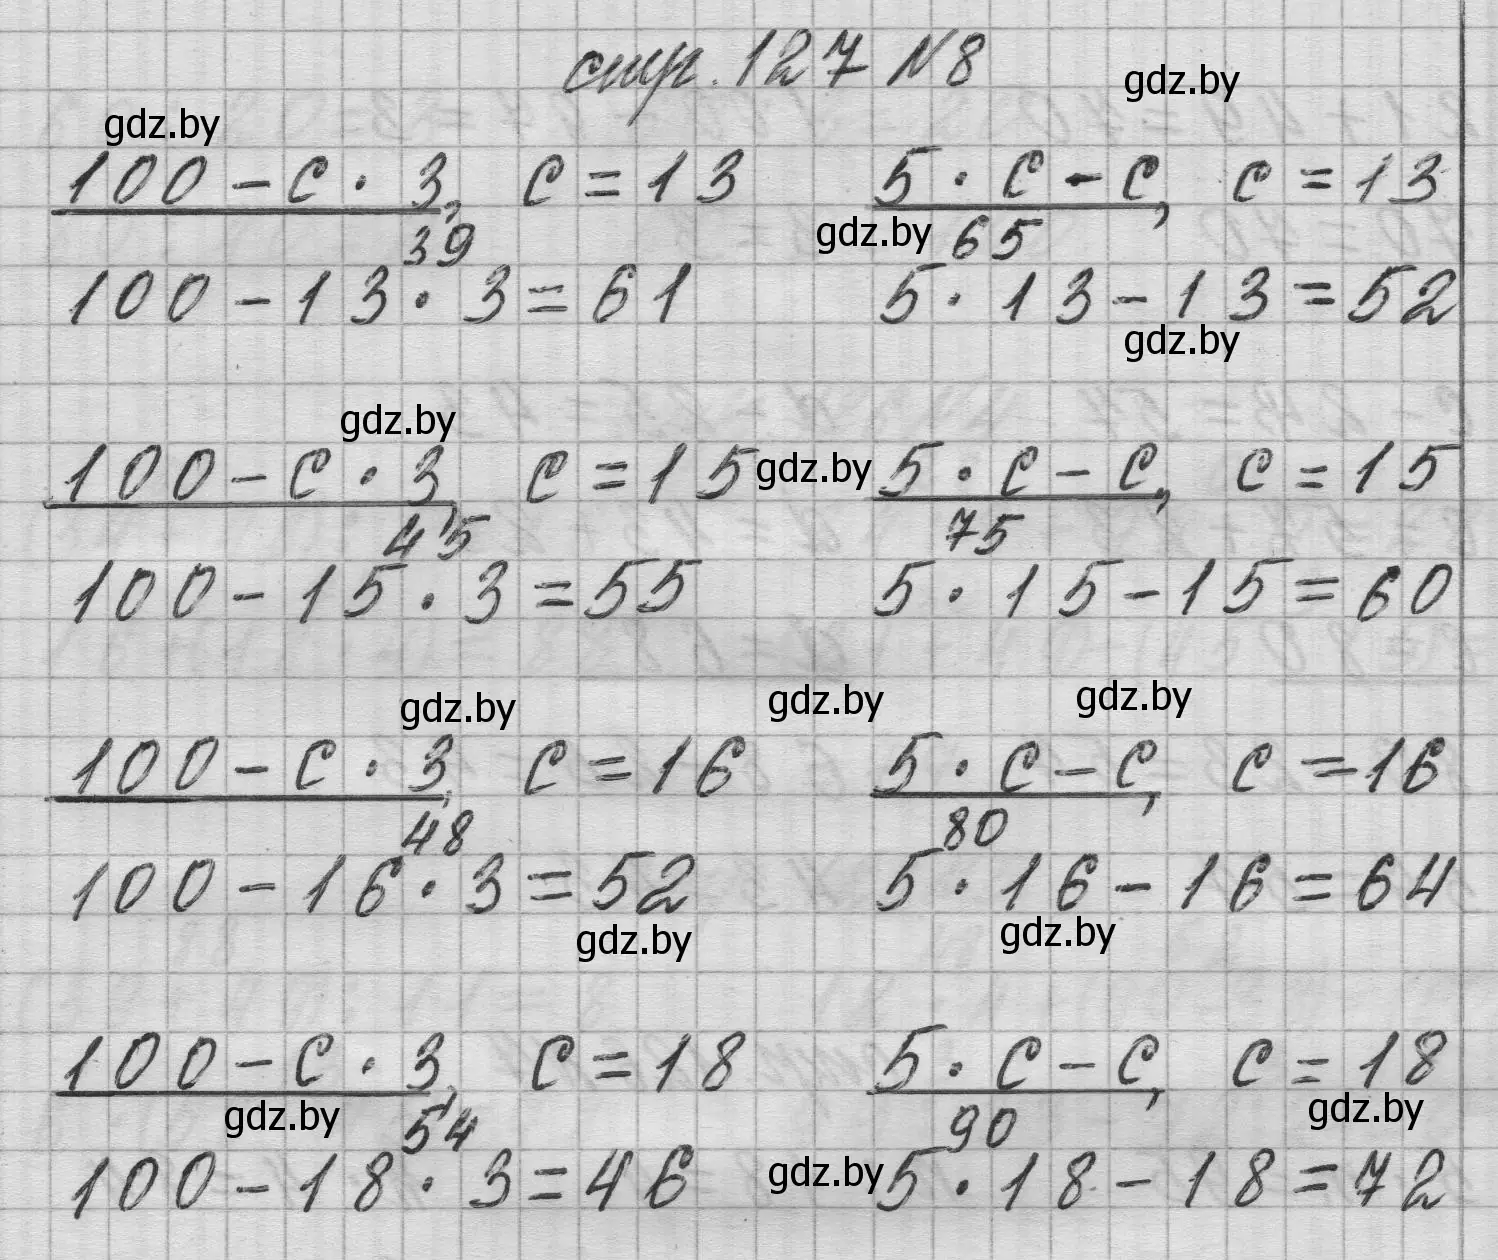 стр. 127 N8
gdz.by
gdz.by
100 - c · 3, c = 13 5 · c - c, c = 13
39 gdz.by 65
100 - 13 · 3 = 61 5 · 13 - 13 = 52
gdz.by
gdz.by
100 - c · 3, c = 15 gdz.by 5 · c - c, c = 15
45 75
100 - 15 · 3 = 55 5 · 15 - 15 = 60
gdz.by gdz.by gdz.by
100 - c · 3, c = 16 5 · c - c, c = 16
48 80
100 - 16 · 3 = 52 5 · 16 - 16 = 64
gdz.by gdz.by
100 - c · 3, c = 18 5 · c - c, c = 18
gdz.by 54 90 gdz.by
100 - 18 · 3 = 46 gdz.by 5 · 18 - 18 = 72